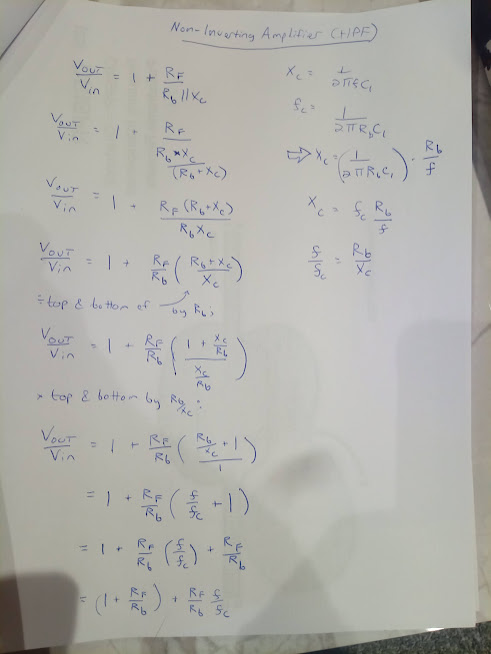 Non-Inverting Amplifier (HPF)
Vout/Vin = 1 + RF/(Rb||Xc)
Vout/Vin = 1 + RF/(Rb*Xc/(Rb+Xc))
Vout/Vin = 1 + RF(Rb+Xc)/(RbXc)
Vout/Vin = 1 + RF/Rb ((Rb+Xc)/Xc)
÷ top & bottom of ↗ by Rb;
Vout/Vin = 1 + RF/Rb ((1 + Xc/Rb)/(Xc/Rb))
* top & bottom by Rb/Xc :
Vout/Vin = 1 + RF/Rb ((Rb/Xc + 1)/1)
= 1 + RF/Rb (f/fc + 1)
= 1 + RF/Rb (f/fc) + RF/Rb
= (1 + RF/Rb) + RF/Rb f/fc
Xc = 1/(2πfC1)
fc = 1/(2πRbC1)
⇒ Xc = (1/(2πRbC1)) · Rb/f
Xc = fc Rb/f
f/fc = Rb/Xc